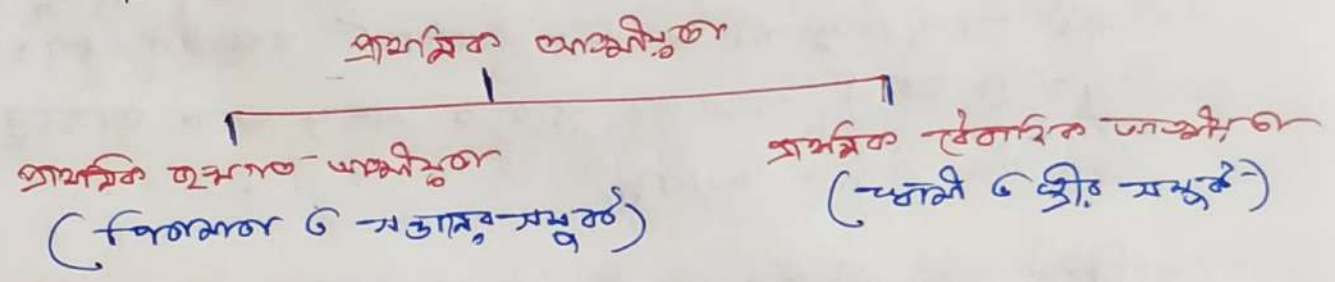 প্রাথমিক আত্মীয়তা
প্রাথমিক রক্তগত আত্মীয়তা
(পিতামাতা ও সন্তানের সম্পর্ক)
প্রাথমিক বৈবাহিক আত্মীয়তা
(স্বামী ও স্ত্রীর সম্পর্ক)